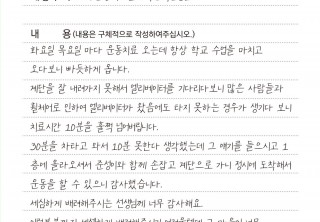 내 용 (내용은 구체적으로 작성하여주십시오.)
화요일 목요일 마다 운동치료 오는데 항상 학교 수업을 마치고
오다보니 빠듯하게 옵니다.
계단을 잘 내려가지 못해서 엘리베이터를 기다리다보니 많은 사람들과
휠체어로 인하여 엘리베이터가 왔음에도 타지 못하는 경우가 생기다 보니
치료시간 10분을 훌쩍 넘겨버립니다.
30분을 차라고 따서 10분 못한다 생각했는데 그 얘기를 들으시고 1
층에 올라오셔서 윤성이와 함께 손잡고 계단으로 가니 정시에 도착해서
운동을 할 수 있으니 감사했습니다.
세심하게 배려해주시는 선생님께 너무 감사해요.